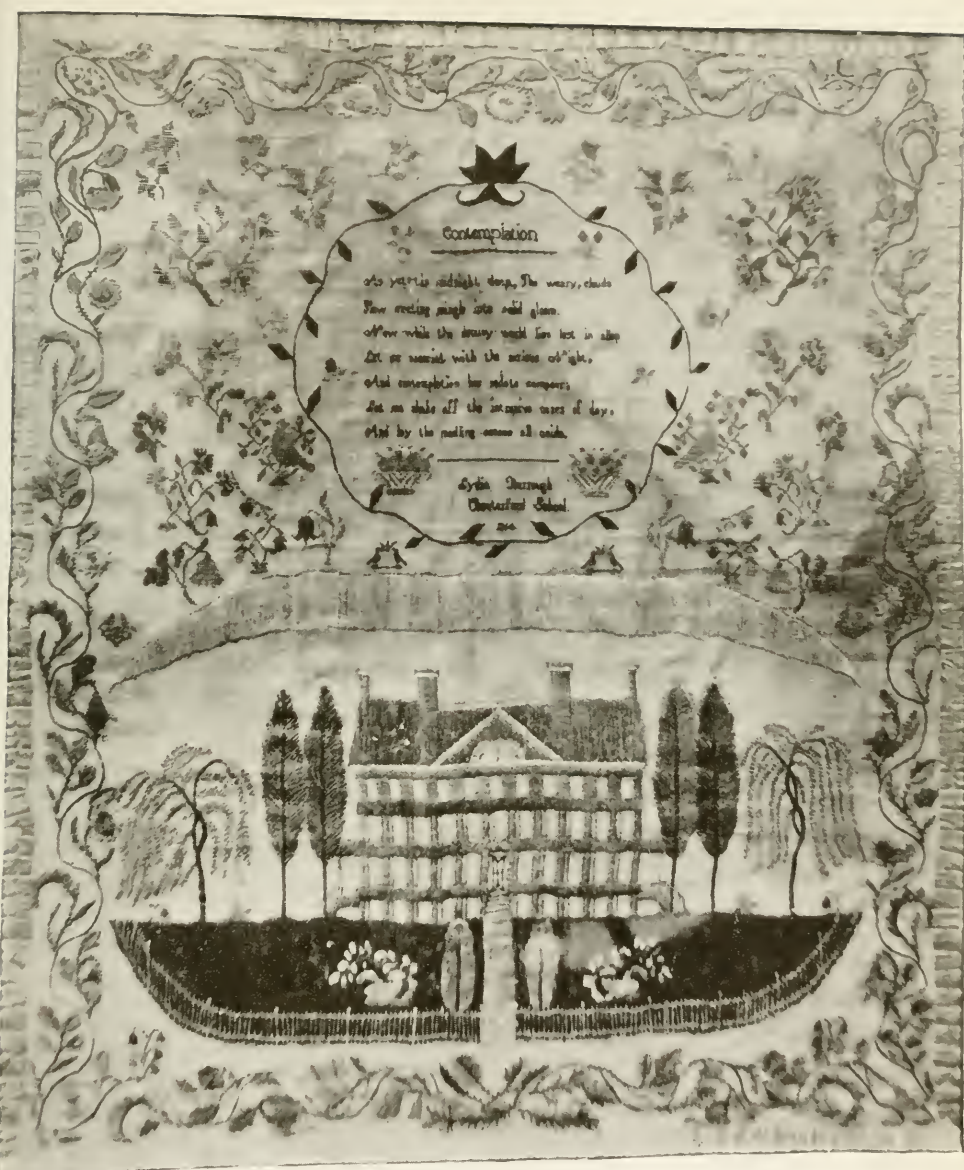 Contemplation
As yet tis midnight deep, The weary, clouds
meeting mingle into solid gloom.
Now while the drowsy world lies lost in sleep
Let me with the serious Night,
And contemplation her sedate compeer;
Let me shake off the intrusive cares of day,
And lay the meddling senses all aside.
Lydia
School.